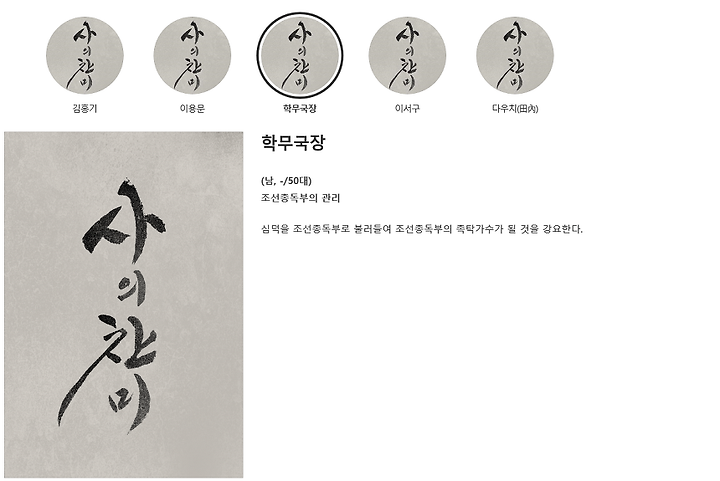 사의찬미
사의찬미
사의찬미
사의찬미
사의찬미
김홍기
이용문
학무국장
이서구
다우치(田內)
학무국장
(남, -/50대)
조선총독부의 관리
심덕을 조선총독부로 불러들여 조선총독부의 촉탁가수가 될 것을 강요한다.
사
의
찬
미